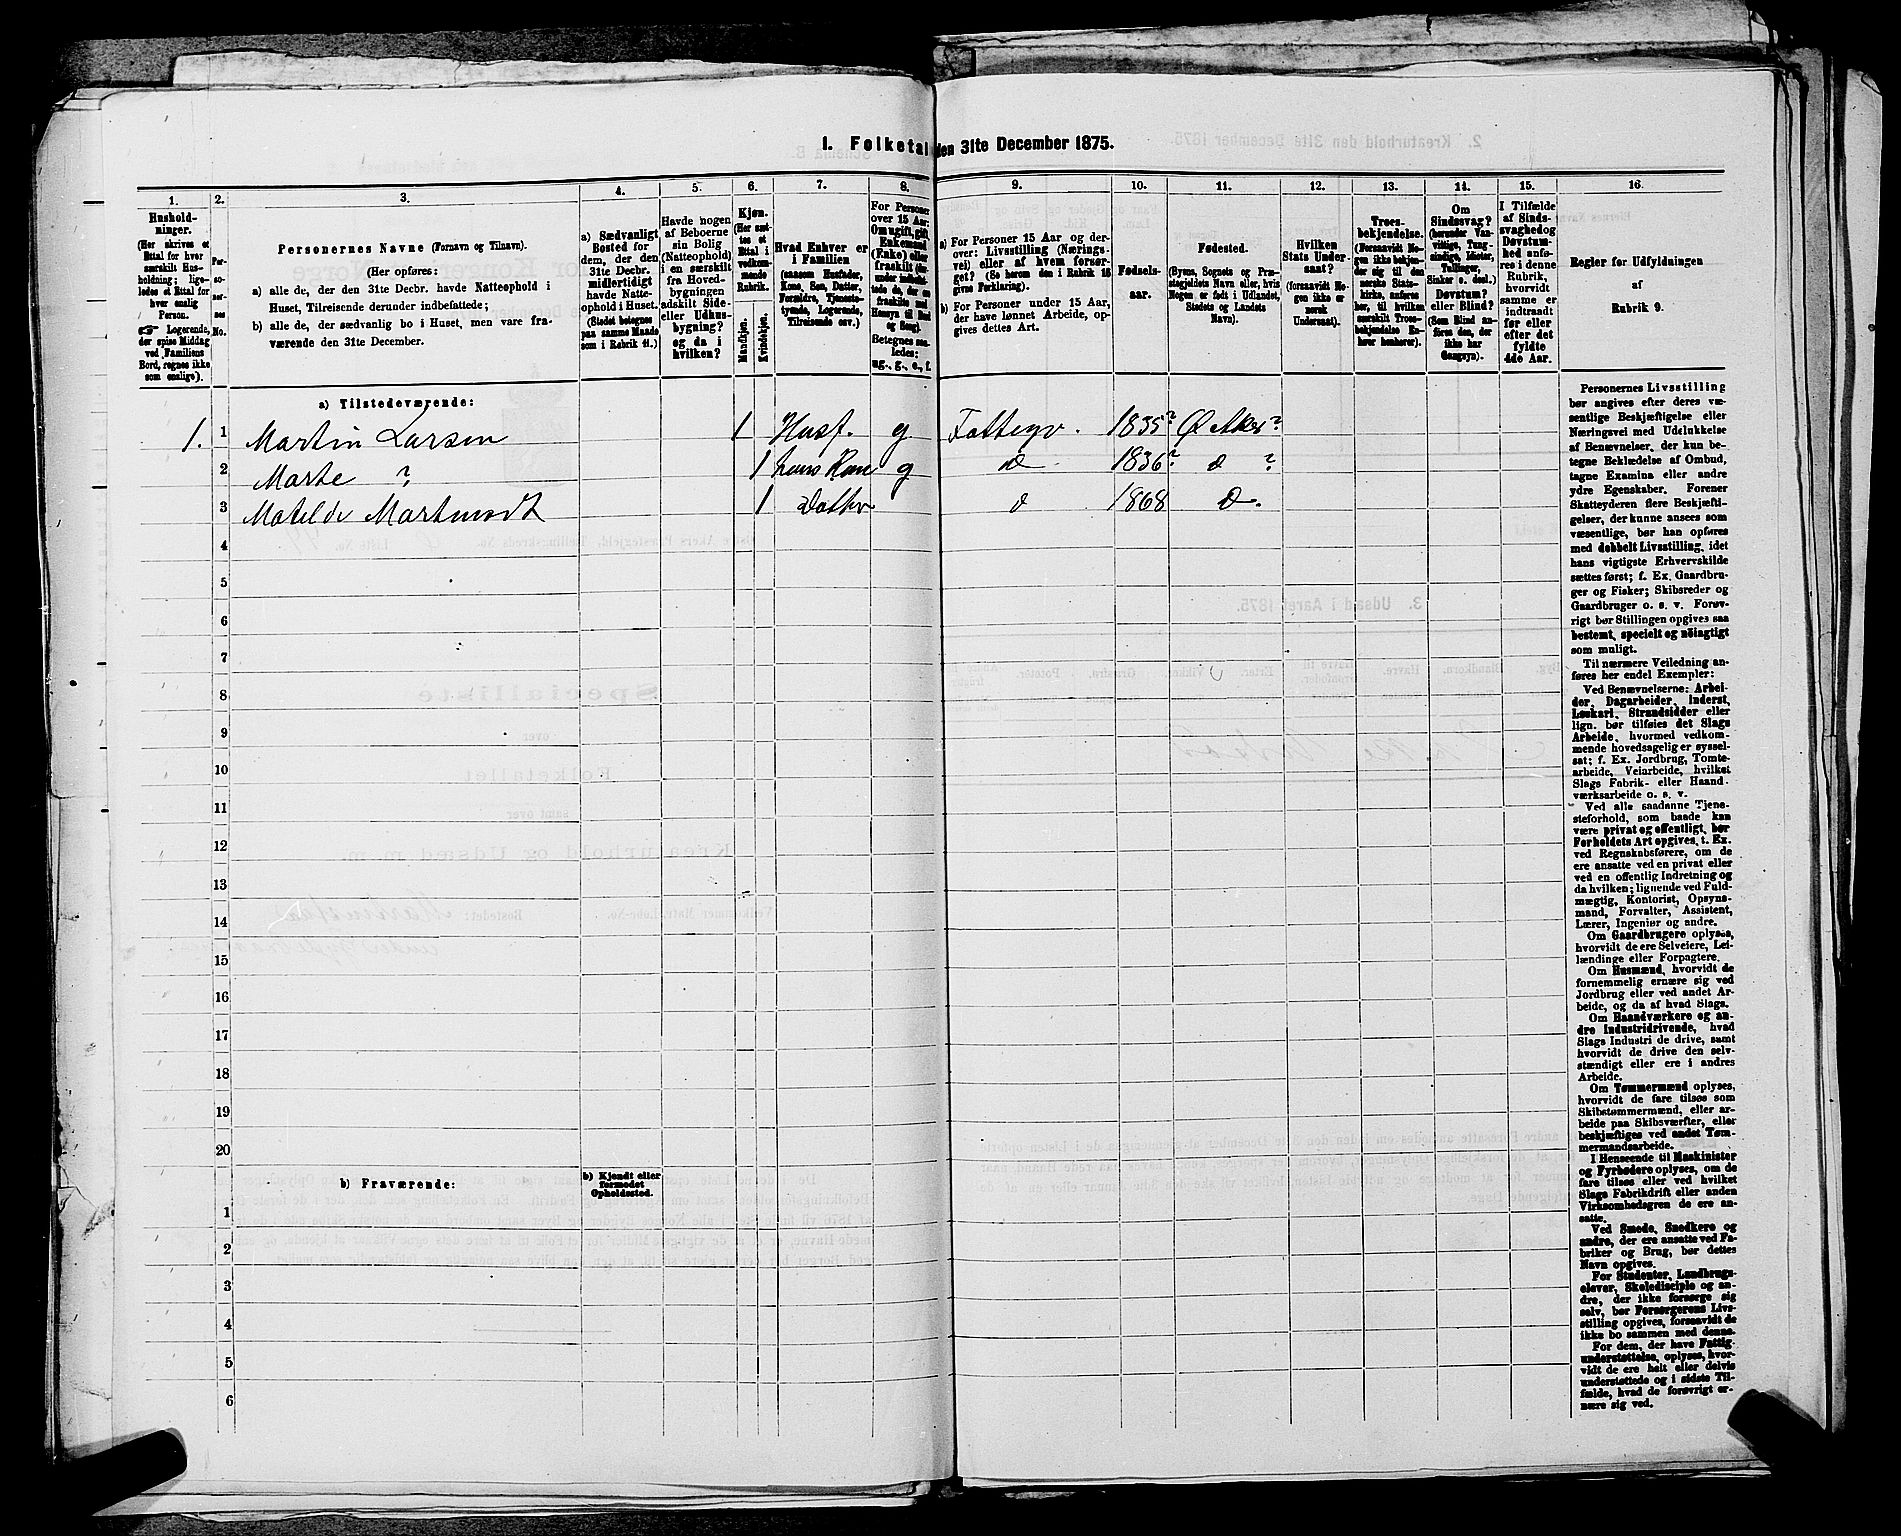 1. Folketal den 31te December 1875.
1. 2. 3. 4. 5. 6. 7. 8. 9. 10. 11. 12. 13. 14. 15. 16.
Hushold-
ninger.
(Her skrives et
Ettal for hver
særskilt Hus-
holdning; lige-
ledes et Ettal for
hver enslig
Person.
Logerende,
der spise Middag
ved Familiens
Bord, regnes ikke
som enslige).
Per-
so-
ner-
nes
No.
Personernes Navne (Fornavn og Tilnavn).
(Her opføres:
a) alle de, der den 31te Decbr. havde Natteophold i
Huset, Tilreisende derunder indbefattede;
b) alle de, der sædvanlig bo i Huset, men vare fra-
værende den 31te December.
a) Sædvanligt
Bosted for
dem, der den
31te Decbr.
midlertidigt
havde Natte-
ophold i Huset.
(Stedet betegnes
paa samme Maade
som i Rubrik 11.)
Havde nogen
af Beboerne
sin Bolig
(Natteophold)
i en særskilt
fra Hoved-
bygningen
adskilt Side-
eller Udhus-
bygning?
og da i
hvilken?
Kjøn.
(Her sæt-
tes et
Ettal i
vedkom-
mende
Rubrik.
Mandkjøn.
Kvindekjøn.
Hvad Enhver er
i Familien
(saasom Husfader,
Kone, Søn, Datter,
Forældre, Tjeneste-
tyende, Logerende,
Tilreisende osv.)
For Personer
over 15 Aar:
Om ugift, gift,
Enkemand
(Enke) eller
fraskilt
Betegnes saa-
ledes:
ug., g., e., f.
a) For Personer 15 Aar og der-
over: Livsstilling (Nærings-
vei) eller af hvem forsør-
get? (Se herom den i Rubrik 16
givne Forklaring).
b) For Personer under 15 Aar,
der have lønnet Arbeide, op-
gives dettes Art.
Fødsels-
aar.
Fødested.
(Byens, Sognets og Præ-
stegjeldets Navn eller, hvis
Nogen er født i Udlandet,
Stedets og Landets
Navn).
Hvilken
Stats Under-
saat?
(forsaavidt No-
gen ikke er
norsk
Undersaat).
Troes-
bekjendelse.
(Forsaavidt No-
gen ikke bekjen-
der sig til den
norske Stats-
kirke, anføres
her, til hvilken
særskilt Troes-
bekjendelse En-
hver henhører).
Om
Sindssvag?
(herunder Van-
vittige, Tung-
sindige, Idioter,
Tullinger,
Sinker o. desl.)
Døvstum?
eller Blind?
(Som Blind an-
føres den, der
ikke har
Gangsyn).
I Tilfælde
af Sinds-
svaghed og
Døvstum-
hed anfø-
res i denne
Rubrik,
hvorvidt
samme er
indtraadt
før eller
efter det
fyldte
4de Aar.
Regler for Udfyldningen
af
Rubrik 9.
a) Tilstedeværende:
1. 1 Martin Larsen 1 Husf. g Fattigv. 1835? Ø Aker?
2 Marte ? 1 hans Kone g d 1836? d ?
3 Matilde Martinsdt 1 Datter d 1868 d.
4
5
6
7
8
9
10
11
12
13
14
15
16
17
18
19
20
b) Fraværende:
b) Kjendt eller
formodet
Opholdssted.
1
2
3
4
5
6
Personernes Livsstilling
bør angives efter deres væ-
sentlige Beskjæftigelse eller
Næringsvei med Udelukkelse
af Benævnelser, der kun be-
tegne Beklædelse af Ombud,
tagne Examina eller andre
ydre Egenskaber. Forener
Skatteyderen flere Beskjæfti-
gelser, der kunne ansees som
væsentlige, bør han opføres
med dobbelt Livsstilling, idet
hans vigtigste Erhvervskilde
sættes først; f. Ex. Gaardbru-
ger og Fisker; Skibsreder og
Gaardbruger o. s. v. Forøv-
rigt bør Stillingen opgives saa
bestemt, specielt og nøiagtigt
som muligt.
Til nærmere Veiledning an-
føres her endel Exempler:
Ved Benævnelserne: Arbei-
der, Dagarbeider, Inderst,
Løskarl, Strandsidder eller
lign. bør tilføies det Slags
Arbeide, hvormed vedkom-
mende hovedsagelig er syssel-
sat; f. Ex. Jordbrug, Tomte-
arbeide, Veiarbeide, hvilket
Slags Fabrik- eller Haand-
værksarbeide o. s. v.
Ved alle saadanne Tjene-
steforhold, som baade kan
være privat og offentligt, bør
Forholdets Art opgives, t. Ex.
ved Regnskabsførere, om de
ere ansatte ved en privat eller
ved en offentlig Indretning og
da hvilken; lignende ved Fuld-
mægtig, Kontorist, Opsyns-
mand, Forvalter, Assistent,
Lærer, Ingeniør og andre.
Om Gaardbrugere oplyses,
hvorvidt de ere Selveiere, Lei-
lændinge eller Forpagtere.
Om Husmænd, hvorvidt de
fornemmelig ernære sig ved
Jordbrug eller ved andet Ar-
beide, og da af hvad Slags.
Om Haandværkere og an-
dre Industridrivende, hvad
Slags Industri de drive, samt
hvorvidt de drive den selv-
stændigt eller ere i andres
Arbeide.
Om Tømmermænd oplyses,
hvorvidt de fare tilsøs som
Skibstømmermænd, eller ar-
beide paa Skibsværfter, eller
beskjæftiges ved andet Tøm-
mermandsarbeide.
I Henseende til Maskinister
og Fyrbødere oplyses, om de
fare tilsøs eller ved hvilket
Slags Fabrikdrift eller anden
Virksomhedsgren de ere an-
satte.
Ved Smede, Snedkere og
andre, der ere ansatte ved Fa-
briker og Brug, bør dettes
Navn opgives.
For Studenter, Landbrugs-
elever, Skoledisciple og an-
dre, der ikke forsørge sig
selv, bør Forsørgerens Livs-
stilling opgives, forsaavidt de
ikke bo sammen med denne.
For dem, der have Fattig-
understøttelse, oplyses, hvor-
vidt de ere helt eller delvis
understøttede og i sidste Til-
fælde, hvad de forøvrigt er-
nære sig ved.